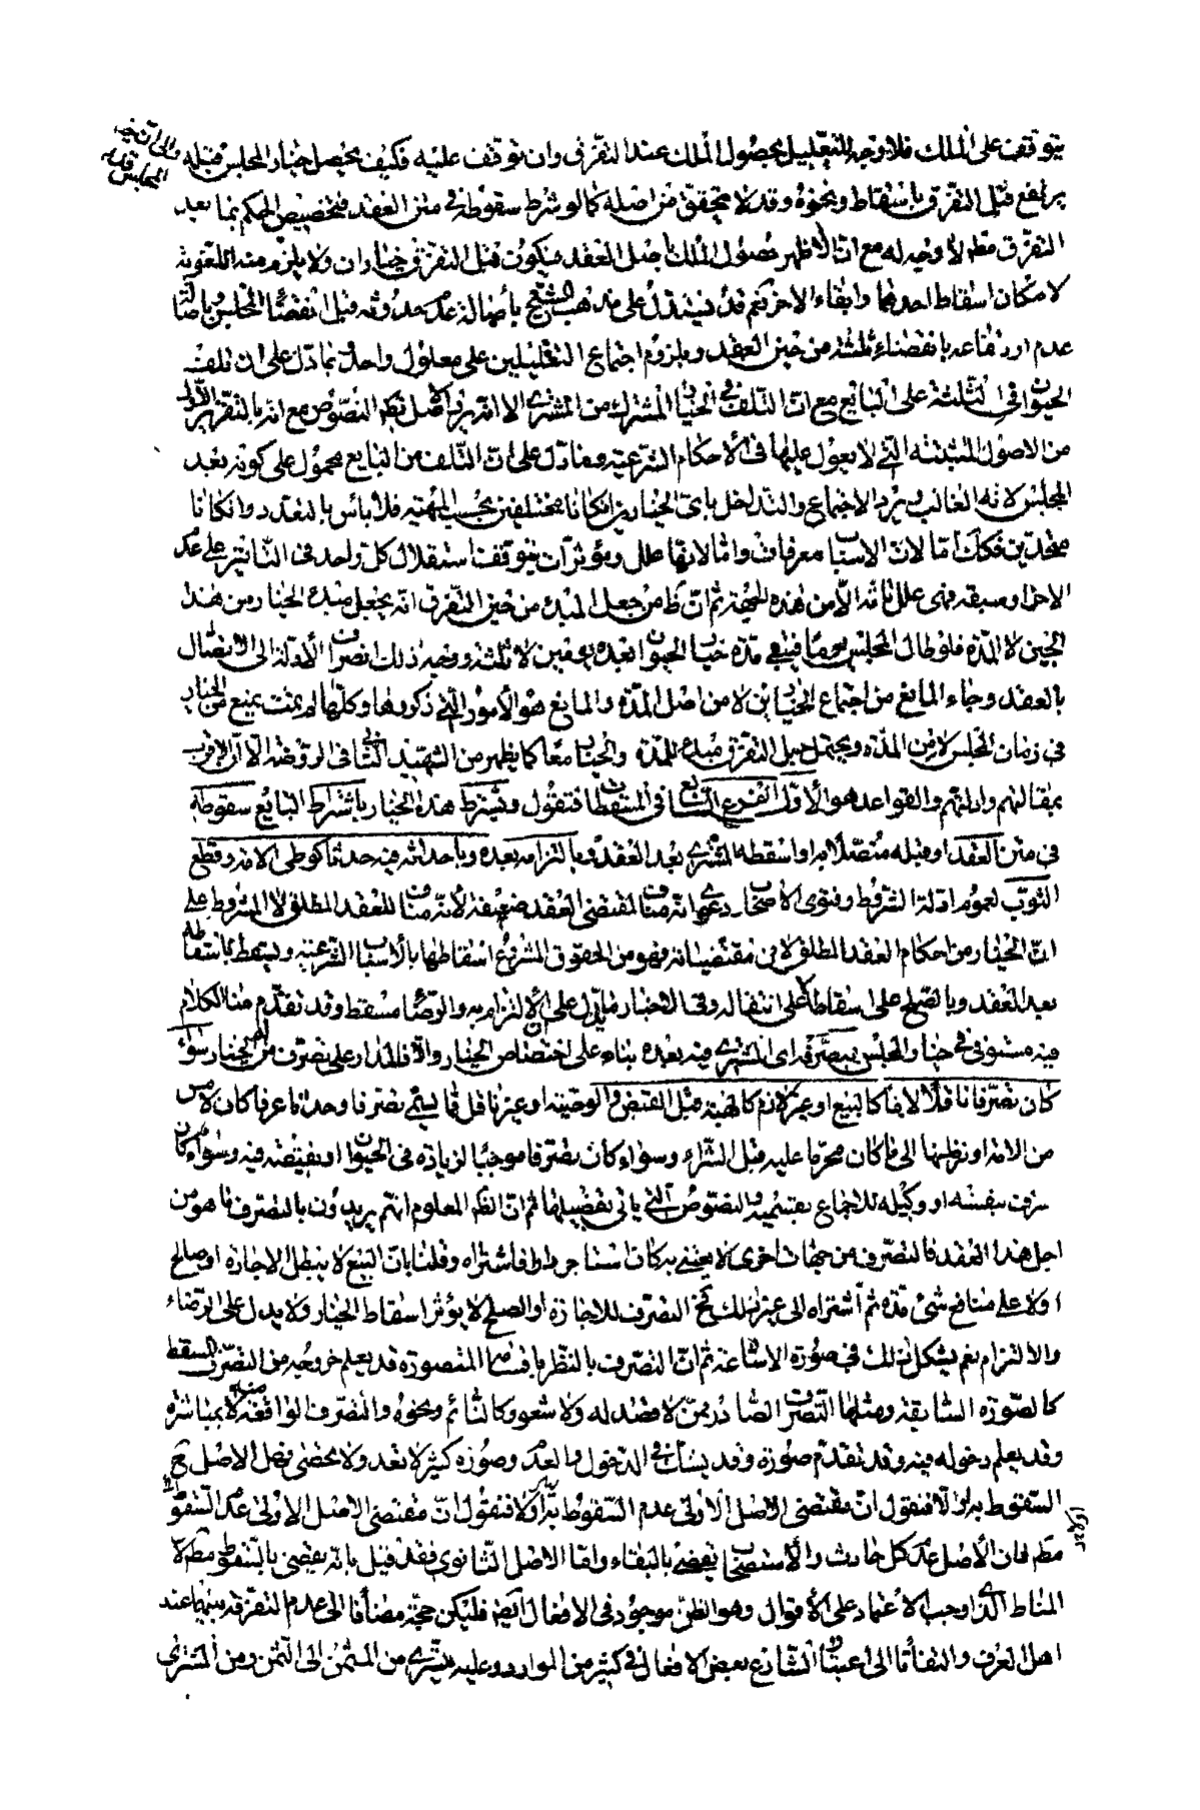 يتوقف على الملك فلا وجه للتعليل بحصول الملك عند التفرق وان توقف عليه فكيف يحصل خيار المجلس قبله
والى ان خيار المجلس قد
يرتفع قبل التفرق باسقاط ونحوه وقد لا يتحقق من اصله كما لو شرط سقوطه في متن العقد فتخصيص الحكم بما بعد
التفرق مطلقا لا وجه له مع ان الاظهر حصول الملك باصل العقد فيكون قبل التفرق خياران ولا يلزم منه اللغوية
لامكان اسقاط احدهما وابقاء الاخر نعم قد يستدل على مذهب الشيخ بأصالة عدم حدوثه قبل انقضاء المجلس وباصالة
عدم ارتفاعه بانقضاء ثلثة من حين العقد وبلزوم اجتماع العلتين على معلول واحد وبما دل على ان تلف
الحيوان في الثلثة على البايع مع ان التلف في الخيار المشترك من المشتري الا انه يرد على الاصل ظهر النصوص مع انه بالتقرير الاول
من الاصول المثبتة التي لا يعول عليها في الاحكام الشرعية وما دل على ان التلف من البايع محمول على كونه بعد
المجلس لانه الغالب ويرد الاجتماع والتداخل بان الخيارين ان كانا مختلفين بحسب المهية فلا بأس بالتعدد وان كانا
متحدين فكك اما لان الاسباب معرفات واما لانها علل ومؤثرات يتوقف استقلال كل واحد في التاثير على عدم
الاخر او سبقه فهي علل تامة الا من هذه الجهة ثم ان ظ من جعل المبدء من حين التفرق انه يجعل مبدء الخيار من هذا
الحين لا المدة فلو طال المجلس يوما فيبقى مدة خيار الحيوان بعده يومين لا ثلثة ووجه ذلك انصراف الأدلة الى الاتصال
بالعقد وجاء المانع من اجتماع الخيارين لا من اصل المدة والمانع هو الأمور التي ذكروها وكلها لو تمت يمنع من الخيار
في زمان المجلس لا من المدة ويحتمل جعل التفرق مبدء للمدة والخيار معا كما يظهر من الشهيد الثاني في الروضة الا ان الاقرب
بمقالتهم وادلتهم والقواعد هو الأول الفرع السابع في المسقطات فنقول ويسقط هذا الخيار باشتراط البايع سقوطه
في متن العقد او قبله متصلا به او اسقطه المشتري بعد العقد بالتزامه بعده وباحداثه فيه حدثا كوطي الامة وقطع
الثوب لعموم ادلة الشروط وفتوى الاصحاب ودعوى انه مناف لمقتضى العقد ضعيفة لأنه مناف للعقد المطلق لا المشروط على
ان الخيار من احكام العقد المطلق لا من مقتضياته فهو من الحقوق المشروع اسقاطها بالأسباب الشرعية ويسقط باسقاطه
بعد العقد وبالصلح على اسقاطه او على انتقاله وفى الاخبار ما يدل على ان الالتزام به والرضا مسقط وقد تقدم منا الكلام
فيه مستوفى في خيار المجلس وبتصرفه اى المشتري فيه بعده بناء على اختصاص الخيار والا فالمدار على تصرف من له الخيار سواء
كان تصرفا ناقلا لازما كالبيع او غير لازم كالهبة قبل القبض والوصية او غير ناقل مما يسمى تصرفا وحدثا عرفا كان لامس
من الامة او نظر منها الى ما كان محرما عليه قبل الشراء وسواء كان تصرفا موجبا لزيادة في الحيوان او نقيصة فيه وسواء كان
تصرف بنفسه او وكيله للاجماع بقسميه والنصوص التي يأتى تفصيلها ثم ان الظ المعلوم انهم يريدون بالتصرف ما هو من
اجل هذا العقد فالتصرف من جهات اخرى لا يجتزى به كان استاجر دارا فاشتراها وقلنا بان البيع لا يبطل الاجارة او صالح
اولا على منافع شئ مدة ثم أشتراه الى غير ذلك نحو التصرف للاجازة او الصلح لا يؤثر اسقاط الخيار ولا يدل على الرضاء
والالتزام نعم يشكل ذلك في صورة الاشاعة ثم ان التصرف بالنظر باقسامه المتصورة قد يعلم خروجه من التصرف المسقط
كالصورة السابقة ومثلها التصرف الصادر ممن لا قصد له ولا شعور كالنائم ونحوه والتصرف الواقع منه لا بمباشرة
وقد يعلم دخوله فيه وقد تقدم صورة وقد يشك في الدخول والعدم وصورة كثيرة لا تعد ولا تحصى فهل الاصل مع
السقوط به او لا فنقول ان مقتضى الاصل الاولى عدم السقوط به او لا فنقول ان مقتضى الاصل الاولى عدم السقوط
مطلقا فان الأصل عدم كل حادث والاستصحاب يقضى بالبقاء واما الاصل الثانوى فقد قيل بانه يقضى بالسقوط مطلقا لان
المناط الذي اوجب الاعتماد على الأقوال وهو الظن موجود في الافعال ايضا فليكن حجة مضافا الى عدم التفرقة بينهما عند
اهل العرف والتفاتا الى اعتبار الشارع بعض الافعال في كثير من الموارد وعليه يسرى من المثمن الى الثمن ومن المشتري